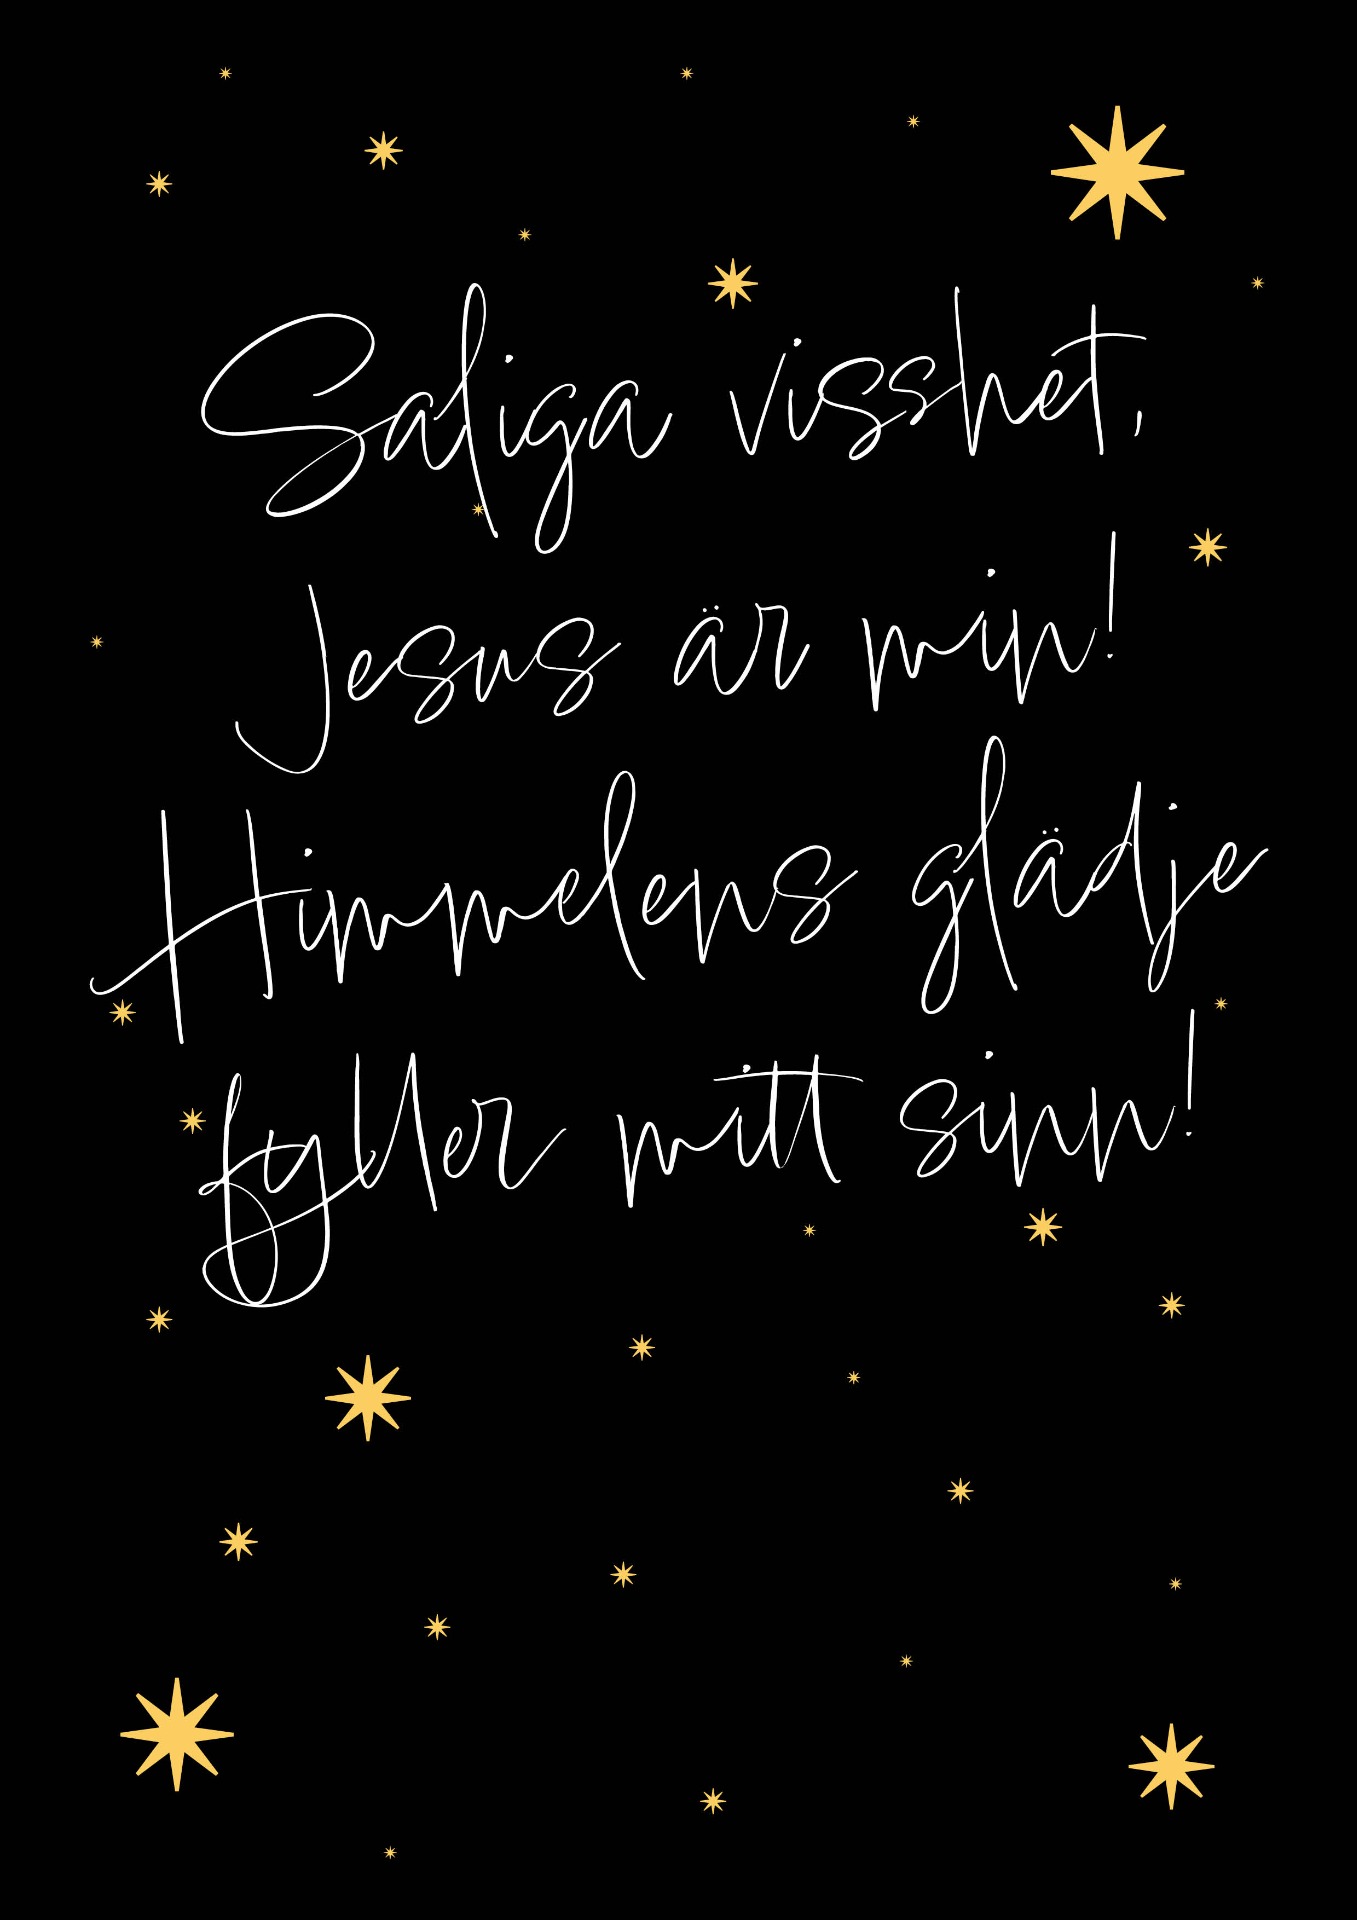 Saliga visshet,
Jesus är min!
Himmelens glädje
fyller mitt sinn!